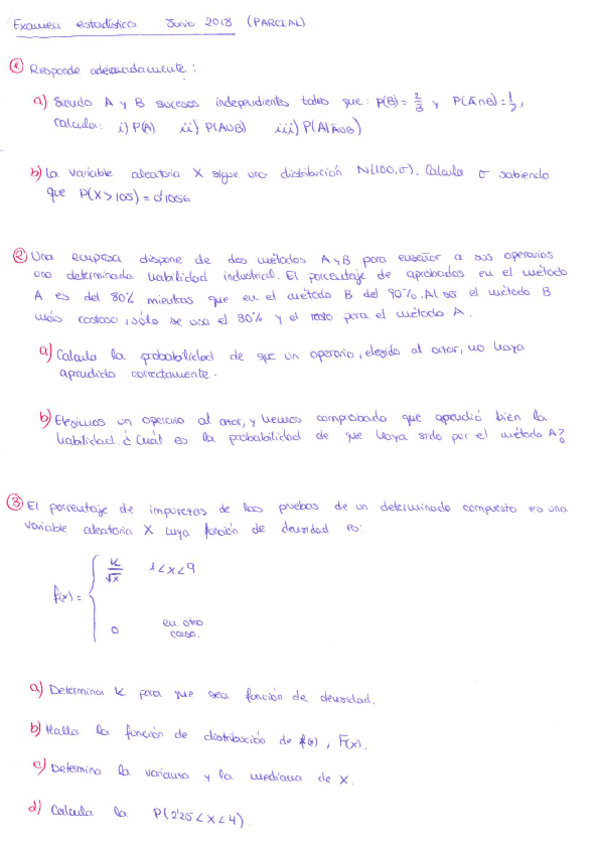 Examen estadística Junio 2018 (PARCIAL)
① Responde adecuadamente:
a) Siendo A y B sucesos independientes tales que: P(B)= 2/3 y P(A∩B)= 1/2,
Calcula: i) P(A) ii) P(A∪B) iii) P(A|A∪B)
b) La variable aleatoria X sigue una distribución N(100,σ). Calcula σ sabiendo
que P(X>105)=0'1056
② Una empresa dispone de dos métodos A y B para enseñar a sus operarios
una determinada habilidad industrial. El porcentaje de aprobados en el método
A es del 80% mientras que en el método B del 90%. Al ser el método B
más costoso, sólo se usa el 30% y el resto para el método A.
a) Calcula la probabilidad de que un operario, elegido al azar, no haya
aprendido correctamente.
b) Elegimos un operario al azar, y hemos comprobado que aprendió bien la
habilidad. ¿Cuál es la probabilidad de que haya sido por el método A?
③ El porcentaje de impurezas de las pruebas de un determinado compuesto es una
variable aleatoria X cuya función de densidad es:
f(x)= { K/√x 1<x<9
0 en otro
caso.
a) Determina K para que sea función de densidad.
b) Halla la función de distribución de f(x), F(x).
c) Determina la varianza y la mediana de X.
d) Calcula la P(2'25<X<4).